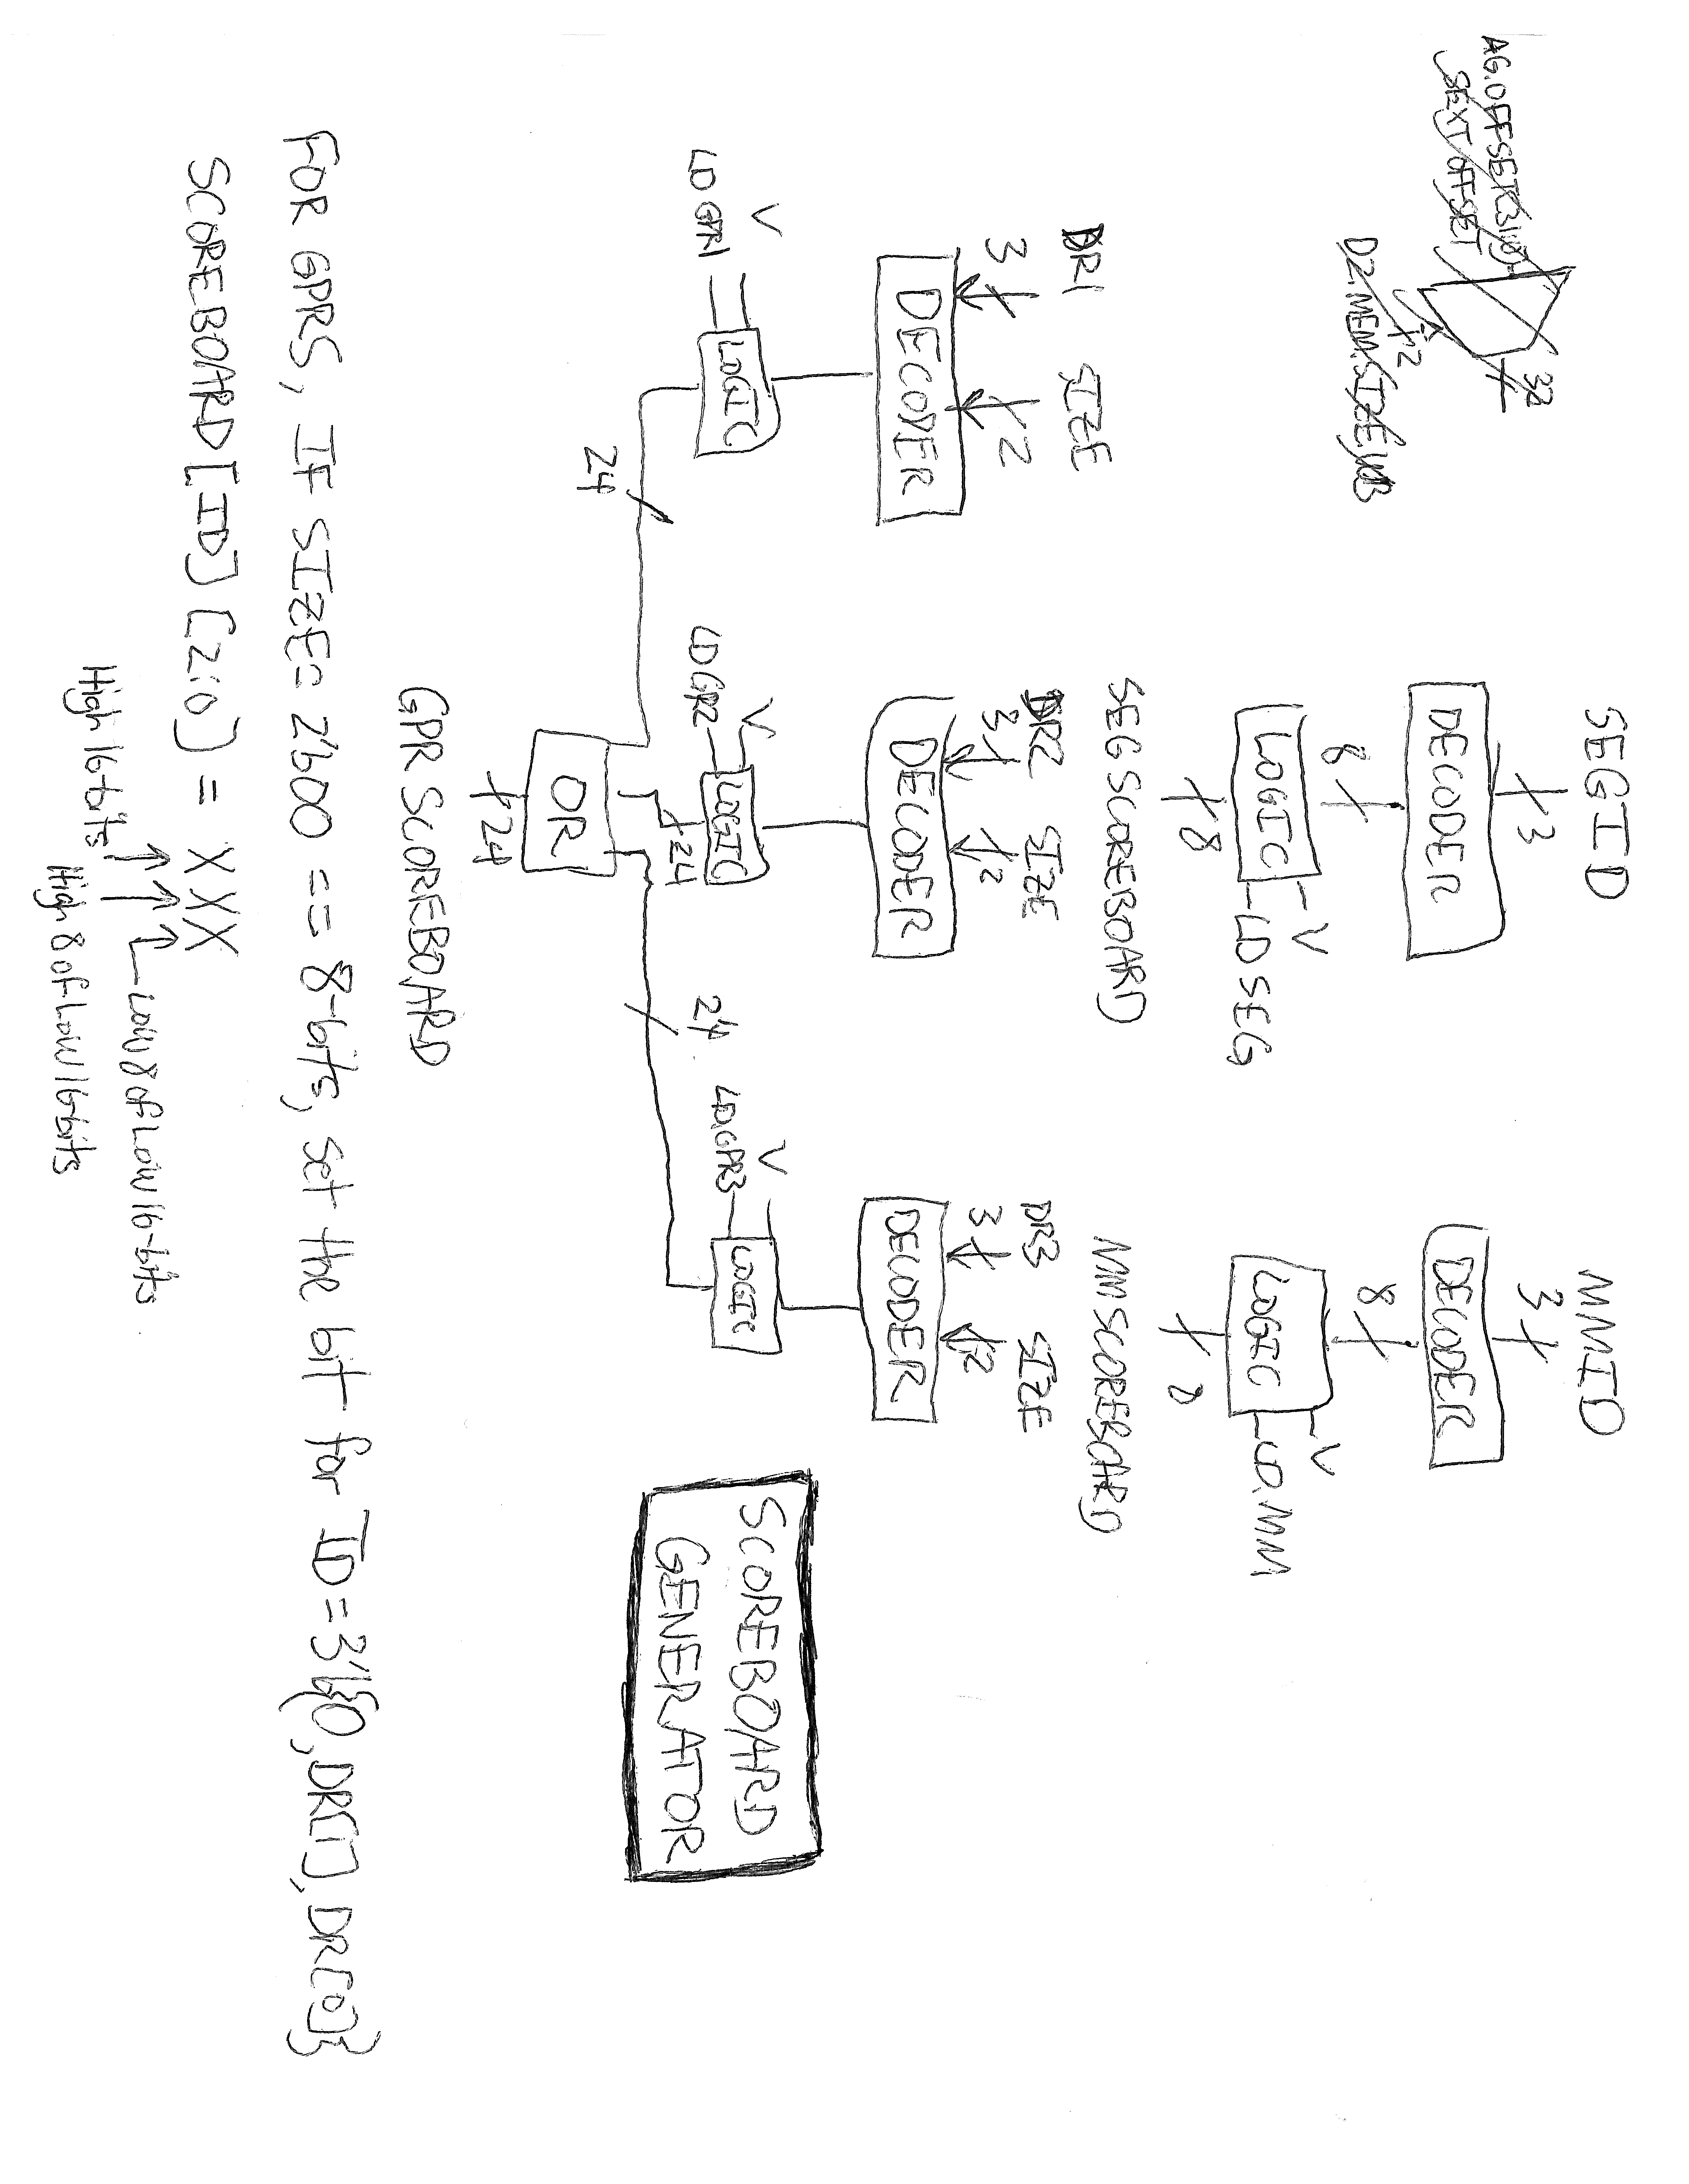 AG.OFFSET(31:0)
SEXT OFFSET
32
2
D2.MEMSIZEWB
SEGID
3
DECODER
8
LOGIC
V
LD SEG
8
SEG SCOREBOARD
MMID
3
DECODER
8
LOGIC
V
LD.MM
MM SCOREBOARD
DR1 SIZE
3 2
DECODER
V
LD GPR1
LOGIC
24
DR2 SIZE
3 2
DECODER
V
LD GPR2
LOGIC
24
DR3 SIZE
3 2
DECODER
V
LD.GPR3
LOGIC
24
OR
24
GPR SCOREBOARD
SCOREBOARD
GENERATOR
FOR GPRS, IF SIZE = 2'b00 == 8-bits, set the bit for ID = 3'b{0, DR[1], DR[0]}
SCOREBOARD[ID][2:0] = XXX
Low 8 of Low 16-bits
High 16-bits
High 8 of Low 16-bits